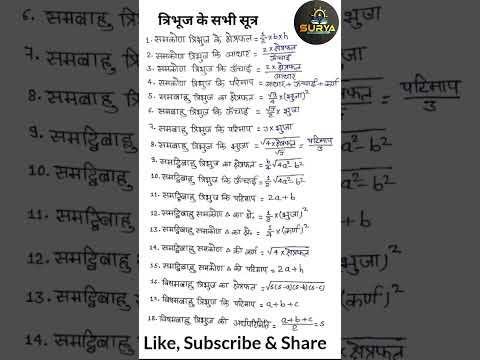 त्रिभुज के सभी सूत्र
SURYA
1. समकोण त्रिभुज के क्षेत्रफल = 1/2 × b × h
2. समकोण त्रिभुज कि आधार = 2 × क्षेत्रफल / ऊँचाई
3. समकोण त्रिभुज कि ऊँचाई = 2 × क्षेत्रफल / आधार
4. समकोण त्रिभुज कि परिमाप = आधार + ऊँचाई + कर्ण
5. समबाहु त्रिभुज का क्षेत्रफल = √3/4 × (भुजा)²
6. समबाहु त्रिभुज कि ऊँचाई = √3/2 × भुजा
7. समबाहु त्रिभुज कि परिमाप = 3 × भुजा
8. समबाहु त्रिभुज कि भुजा = √4 × क्षेत्रफल / √3 = परिमाप / 3
9. समद्विबाहु त्रिभुज का क्षेत्रफल = b/4 √4a² - b²
10. समद्विबाहु त्रिभुज कि ऊँचाई = 1/2 √4a² - b²
11. समद्विबाहु त्रिभुज कि परिमाप = 2a + b
12. समद्विबाहु समकोण △ का क्षे॰ = 1/2 × (भुजा)²
13. समद्विबाहु समकोण △ का क्षे॰ = 1/4 × (कर्ण)²
14. समद्विबाहु समकोण △ की कर्ण = √4 × क्षेत्रफल
15. समद्विबाहु समकोण △ की परिमाप = 2a + h
16. विषमबाहु त्रिभुज का क्षेत्रफल = √s(s-a)(s-b)(s-c)
17. विषमबाहु त्रिभुज कि परिमाप = a + b + c
18. विषमबाहु त्रिभुज की अर्धपरिमिति = a + b + c / 2 = s
Like, Subscribe & Share